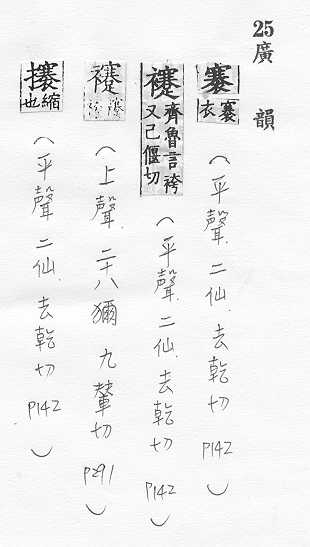 25 廣韻
褰 褰衣 (平聲 二仙 去乾切 P142)
齊魯言袴又己偃切 (平聲 二仙 去乾切 P142)
(上聲 二十八獮 九輦切 P291)
攐 縮也 (平聲 二仙 去乾切 P142)